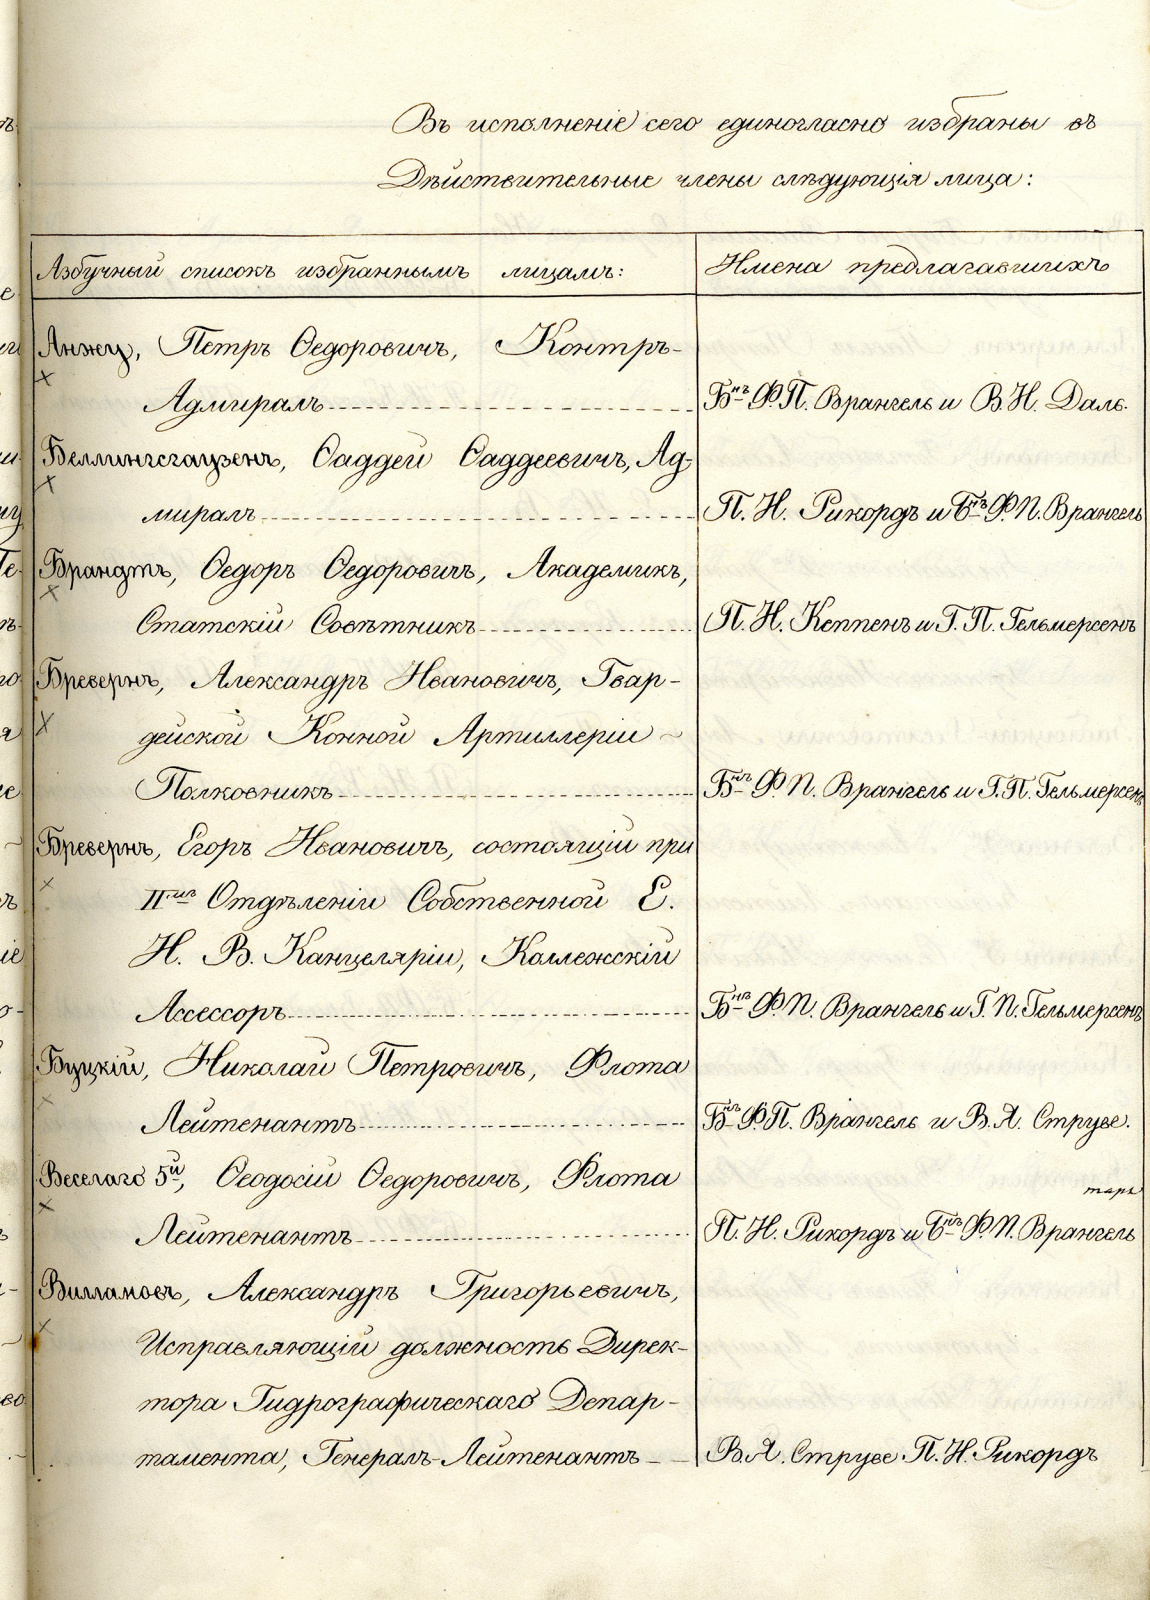 Въ исполненіе сего единогласно избраны въ
Дѣйствительные члены слѣдующія лица:
Азбучный списокъ избраннымъ лицамъ:
Имена предлагавшихъ
Анжу, Петръ Ѳедоровичъ, Контръ-
Адмиралъ
Бнъ Ф. П. Врангель и В. И. Даль.
Беллингсгаузенъ, Ѳаддей Ѳаддеевичъ, Ад-
миралъ
П. И. Рикордъ и Бнъ Ф. П. Врангель
Брандтъ, Ѳедоръ Ѳедоровичъ, Академикъ,
Статскій Совѣтникъ
П. И. Кеппенъ и Г. П. Гельмерсенъ
Бревернъ, Александръ Ивановичъ, Гвар-
дейской Конной Артиллеріи
Полковникъ
Бнъ Ф. П. Врангель и Г. П. Гельмерсенъ
Бревернъ, Егоръ Ивановичъ, состоящій при
II мъ Отдѣленіи Собственной Е.
И. В. Канцеляріи, Коллежскій
Ассессоръ
Бнъ Ф. П. Врангель и Г. П. Гельмерсенъ
Буцкій, Николай Петровичъ, Флота
Лейтенантъ
Бнъ Ф. П. Врангель и В. Я. Струве.
Веселаго 5й, Ѳеодосій Ѳедоровичъ, Флота
Лейтенантъ
П. И. Рикордъ и Бнъ Ф. П. Врангель
Вилламовъ, Александръ Григорьевичъ,
Исправляющій должность Дирек-
тора Гидрографическаго Депар-
тамента, Генералъ-Лейтенантъ
В. Я. Струве П. И. Рикордъ